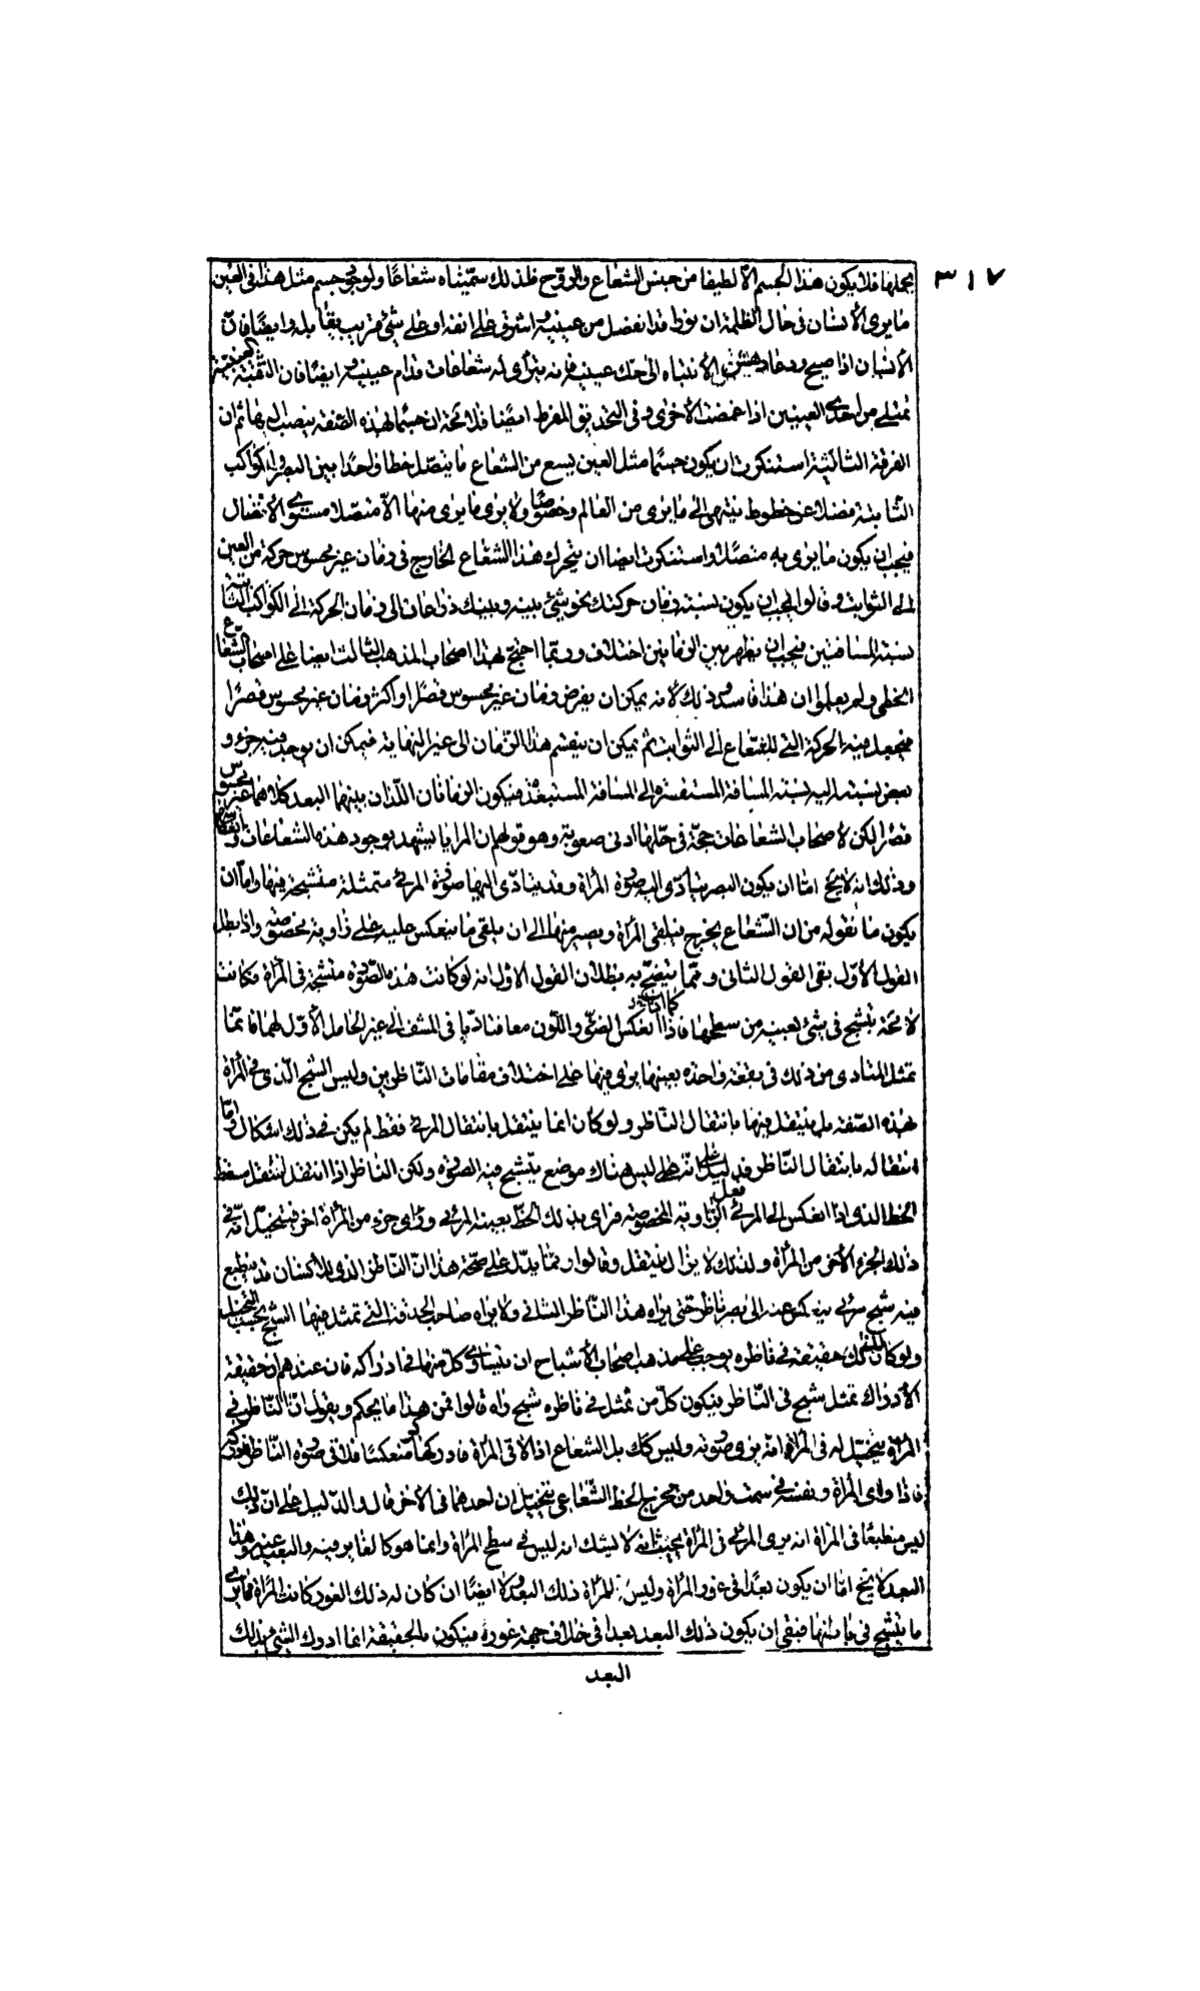 ٣١٧
يحملها فلا يكون هذا الجسم الا لطيفا من جنس الشعاع والروح فلذلك سميناه شعاعا ولولا جسم مثل هذا فى العين
ما يرى الانسان فى حال الظلمة ان نورا قد انفصل من عينيه واشرق على انفه او على شئ قريب يقابله وايضا فان
الانسان اذا اصبح ودعاه دهش الانتباه الى حك عينيه فانه يتراءى له شعاعات قدام عينيه وايضا فان الثقبة العنبية
تمتلى من احدى العينين اذا غمضت الاخرى وفى التحديق المفرط ايضا فلا محة ان جسما بهذه الصفة ينصب اليها ثم ان
الفرقة الثانية استنكرت ان يكون جسما مثل العين يسع من الشعاع ما يتصل خطا واحدا بين البصر والكواكب
الثابتة فضلا عن خطوط ينتهى الى ما يرى من العالم وخصوصا ولا يرى ما يرى منها الا متصلا مستوى الاتصال
فيجب ان يكون ما يرى به متصلا واستنكرت ايضا ان يتحرك هذا الشعاع الخارج فى زمان غير محسوس حركة من العين
الى الثوابت وقالوا يجب ان يكون نسبة زمان حركتك نحو شئ بينه وبينك ذراعان الى زمان الحركة الى الكواكب الثابتة
نسبة المسافتين فيجب ان يظهر بين الزمانين اختلاف وربما احتج بهذا اصحاب المذهب الثالث ايضا على اصحاب الشعاع
الخطى ولم يعلموا ان هذا فاسد وذلك لانه يمكن ان يفرض زمان غير محسوس قصرا او اكثر زمان غير محسوس قصرا
فيجعل فيه الحركة التى للشعاع الى الثوابت ثم يمكن ان ينقسم هذا الزمان الى غير النهاية فيمكن ان يوجد فيه جزء و
بعض نسبته اليه نسبة المسافة المستقصرة الى المسافة المستبعدة فيكون الزمانان اللذان بينهما البعد كلاهما غير محسوس
قصرا لكن لاصحاب الشعاعات حجة فى حلها ادنى صعوبة وهو قولهم ان المرايا يشهد بوجود هذه الشعاعات وانعكاسها
وذلك انه لا يخ اما ان يكون البصر يتادى اليه صورة المرآة وقد يتادى اليها صورة المرئى متمثلة متشبحة فيها واما ان
يكون ما نقوله من ان الشعاع يخرج فيلقى المرآة ويصير منها الى ان يلقى ما ينعكس عليه على زاوية مخصوصة واذا بطل
القول الاول بقى القول الثانى ومما يتضح به بطلان القول الاول انه لو كانت هذه الصورة متشبحة فى المرآة فكانت
لا محة تتشبح فى شئ بعينه من سطحها كما اذا انعكس الضوء واللون معا فتاديا فى المشف الى غير الحامل الاول لهما فانما
تمثل المتادى من ذلك فى بقعة واحدة بعينها يرى فيها على اختلاف مقامات الناظرين وليس الشبح الذى فى المرآة
بهذه الصفة بل ينتقل فيها بانتقال الناظر ولو كان انما ينتقل بانتقال المرئى فقط لم يكن فى ذلك اشكال واما
انتقاله بانتقال الناظر فدليل على انه ليس هناك موضع يتشبح فيه الصورة ولكن الناظر اذا انتقل انتقل مسقط
الخط الذى اذا انعكس الى المرئى فعل الزاوية المخصوصة فراى بذلك الخط بعينه المرئى وراى جزء من المرآة اخر فيتخيل انه فى
ذلك الجزء الاخر من المرآة ولذلك لا يزال ينتقل وقالوا ومما يدل على صحة هذا ان الناظر الذى للانسان قد ينطبع
فيه شبح مرئى ينعكس عنه الى بصر ناظر حتى يراه هذا الناظر الثانى ولا يراه صاحب الحدقة التى تمثل فيها الشبح بحسب التخيل
ولو كان لذلك حقيقة فى ناظره لوجب على مذهب اصحاب الاشباح ان يتساوى كل منهما فى ادراكه فان عندهم ان حقيقة
الادراك تمثل شبح فى الناظر فيكون كل من تمثل فى ناظره شبح راه قالوا فمن هذا ما يحكم ويقول ان الناظر فى
المرآة يتخيل له فى المرآة انه يرى صورته وليس كك بل الشعاع اذا لاقى المرآة فادركها كر منعكسا فلاقى صورة الناظر فادركه
فاذا راى المرآة ونفسه فى سمت واحد من مخرج الخط الشعاعى يتخيل ان احدهما فى الاخر قال والدليل على ان ذلك
ليس منطبعا فى المرآة انه يرى المرئى فى المرآة بحيث انه لا يشك انه ليس فى سطح المرآة وانما هو كالغاير فيه والبعيد عنه وهذا
البعد لا يخ اما ان يكون بعدا فى غور المرآة وليس للمرآة ذلك البعد ولا ايضا ان كان له ذلك الغور كانت المرآة مما يرى
ما يتشبح فى باطنها فبقى ان يكون ذلك البعد بعدا فى خلاف جهة غوره فيكون بالحقيقة انما ادرك الشئ بذلك
البعد